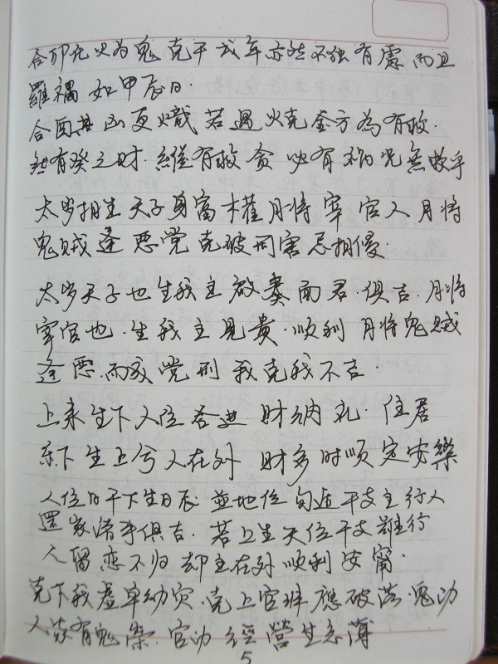 合卯九火为鬼 克干戌年亦然 不独有虑 而且
罹祸 如甲辰日.
合酉其凶更炽 若遇火克金方為有救.
然有癸之财. 纵有救贪 必有祸 况無救乎
太岁相生天子身富权 月将宰官人月将
鬼贼逢恶党克破刑害忌相侵.
太岁天子也 生我主啟奏面君. 俱吉. 月将
宰官也. 生我主見貴. 順利 月将鬼贼
逢恶. 而成党刑我克我不吉.
上来生下人位吞进财纳礼. 住居
下生上兮人在外 财多时顺定安樂
人位日干下生日辰. 並地位 干支主行人
還家诸事俱吉. 若上生天位干支雖行
人留恋不归 却主在外顺利安甯.
克下我虚卑幼灾. 克上官 破 鬼动
人家有鬼祟. 官动经营生意薄
5